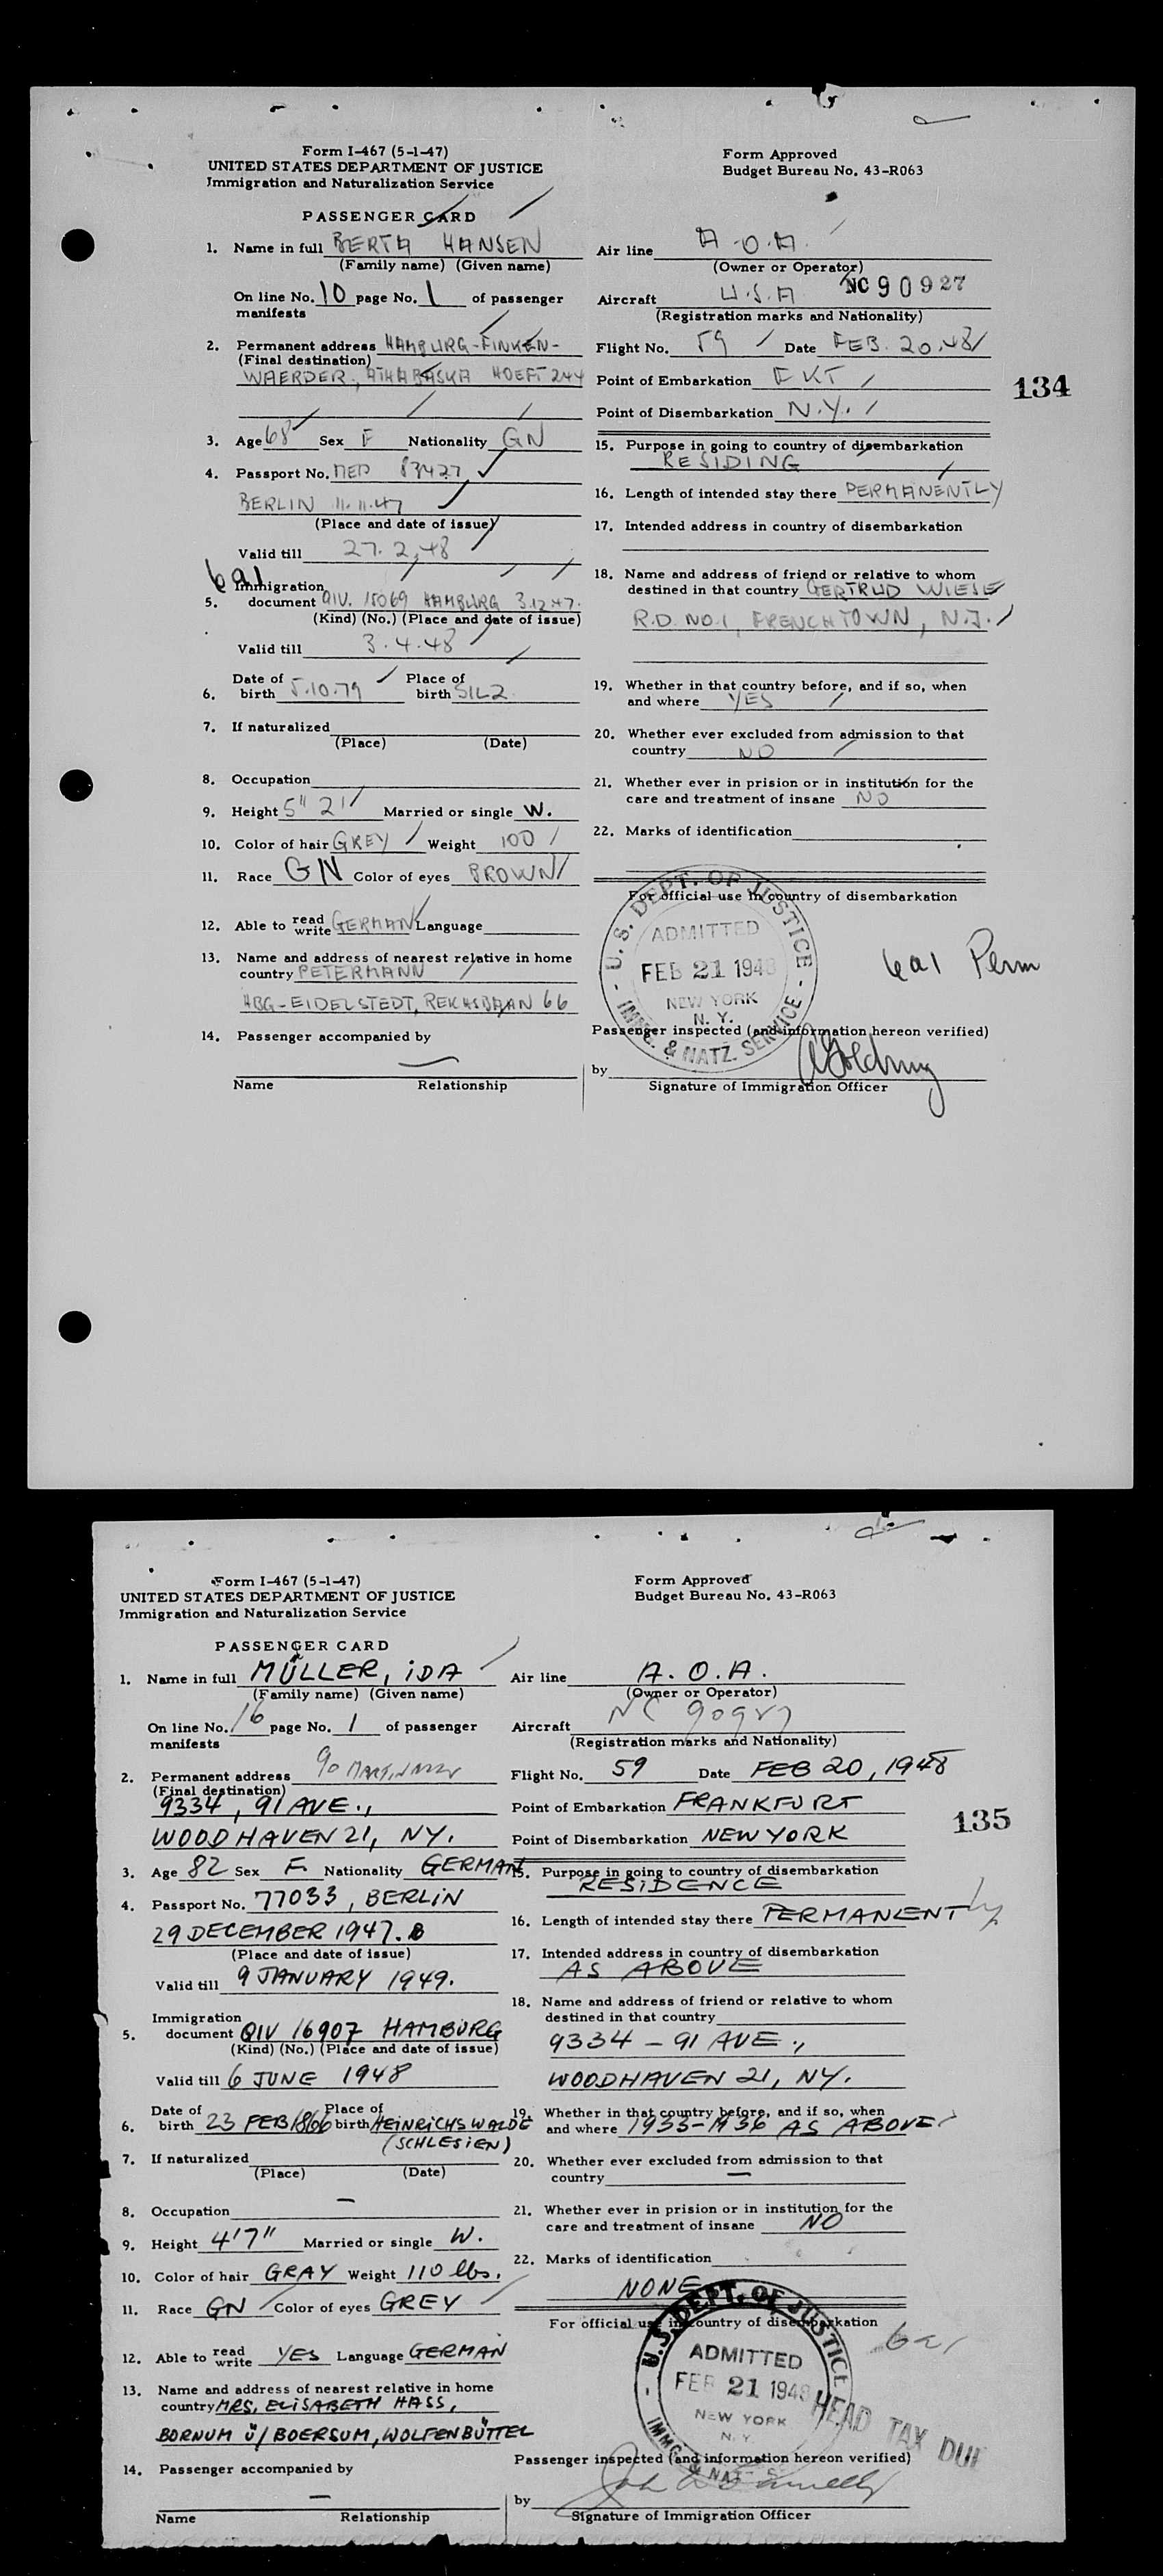 Form I-467 (5-1-47)
UNITED STATES DEPARTMENT OF JUSTICE
Immigration and Naturalization Service
Form Approved
Budget Bureau No. 43-R063
PASSENGER CARD
1. Name in full BERTA HANSEN
(Family name) (Given name)
On line No. 10 page No. 1 of passenger
manifests
2. Permanent address HAMBURG-FINKEN-
(Final destination)
WAERDER, ATHABASKA HOEFT 244
3. Age 68 Sex F Nationality GN
4. Passport No. MED 83427
BERLIN 11.11.47
(Place and date of issue)
Valid till 27.2.48
6a1
Immigration
5. document QIV. 15069 HAMBURG 3.12.47.
(Kind) (No.) (Place and date of issue)
Valid till 3.4.48
Date of Place of
6. birth 5.10.79 birth SILZ
7. If naturalized
(Place) (Date)
8. Occupation
9. Height 5" 2' Married or single W.
10. Color of hair GREY Weight 100
11. Race GN Color of eyes BROWN
12. Able to read write GERMAN Language
13. Name and address of nearest relative in home
country PETERMANN
HBG-EIDELSTEDT, REICHSBAHN 66
14. Passenger accompanied by
Name Relationship
Air line A.O.A.
(Owner or Operator)
Aircraft U.S.A NC 90927
(Registration marks and Nationality)
Flight No. 59 Date FEB. 20.48
Point of Embarkation FKT
134
Point of Disembarkation N.Y.
15. Purpose in going to country of disembarkation
RESIDING
16. Length of intended stay there PERMANENTLY
17. Intended address in country of disembarkation
18. Name and address of friend or relative to whom
destined in that country GERTRUD WIESE
R.D. NO.1, FRENCHTOWN, N.J.
19. Whether in that country before, and if so, when
and where YES
20. Whether ever excluded from admission to that
country NO
21. Whether ever in prision or in institution for the
care and treatment of insane NO
22. Marks of identification
For official use in country of disembarkation
U.S. DEPT. OF JUSTICE
ADMITTED
FEB 21 1948
NEW YORK
N. Y.
IMMG. & NATZ. SERVICE
6a1 Perm
Passenger inspected (and information hereon verified)
by
Signature of Immigration Officer
Form I-467 (5-1-47)
UNITED STATES DEPARTMENT OF JUSTICE
Immigration and Naturalization Service
Form Approved
Budget Bureau No. 43-R063
PASSENGER CARD
1. Name in full MÜLLER, IDA
(Family name) (Given name)
On line No. 16 page No. 1 of passenger
manifests
2. Permanent address
(Final destination)
9334, 91 AVE.,
WOODHAVEN 21, NY.
3. Age 82 Sex F. Nationality GERMAN
4. Passport No. 77033, BERLIN
29 DECEMBER 1947.
(Place and date of issue)
Valid till 9 JANUARY 1949.
Immigration
5. document QIV 16907 HAMBURG
(Kind) (No.) (Place and date of issue)
Valid till 6 JUNE 1948
Date of Place of
6. birth 23 FEB 1866 birth HEINRICHSWALDE
(SCHLESIEN)
7. If naturalized
(Place) (Date)
8. Occupation —
9. Height 4'7" Married or single W.
10. Color of hair GRAY Weight 110 lbs.
11. Race GN Color of eyes GREY
12. Able to read write YES Language GERMAN
13. Name and address of nearest relative in home
country MRS. ELISABETH HASS,
BORNUM Ü/BOERSUM, WOLFENBÜTTEL
14. Passenger accompanied by
—
Name Relationship
Air line A.O.A.
(Owner or Operator)
Aircraft NC 90927
(Registration marks and Nationality)
Flight No. 59 Date FEB 20, 1948
Point of Embarkation FRANKFURT
135
Point of Disembarkation NEW YORK
15. Purpose in going to country of disembarkation
RESIDENCE
16. Length of intended stay there PERMANENTLY
17. Intended address in country of disembarkation
AS ABOVE
18. Name and address of friend or relative to whom
destined in that country
9334 – 91 AVE.,
WOODHAVEN 21, NY.
19. Whether in that country before, and if so, when
and where 1935-1936 AS ABOVE
20. Whether ever excluded from admission to that
country —
21. Whether ever in prision or in institution for the
care and treatment of insane NO
22. Marks of identification
NONE
For official use in country of disembarkation
6a1
U.S. DEPT. OF JUSTICE
ADMITTED
FEB 21 1948
NEW YORK
N. Y.
IMMG. & NAT
HEAD TAX DUE
Passenger inspected (and information hereon verified)
by
Signature of Immigration Officer